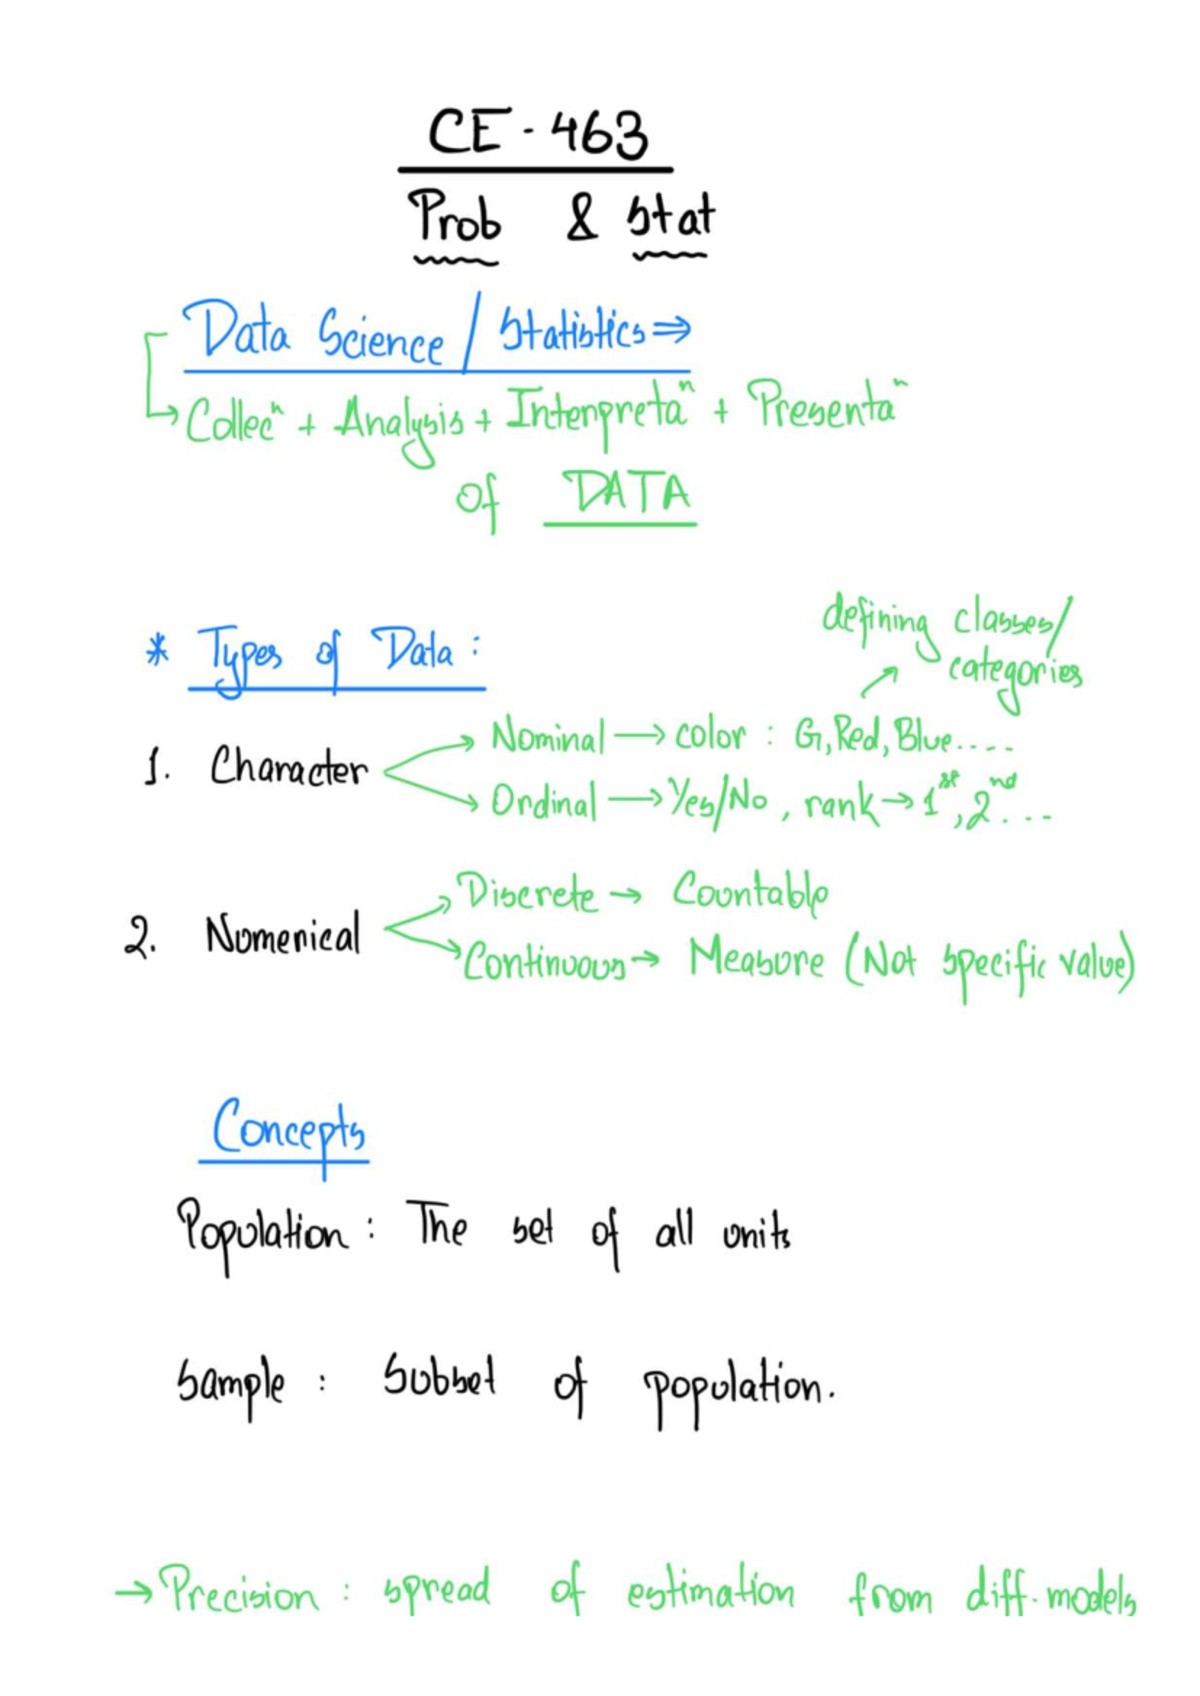 CE - 463
Prob & Stat
Data Science / Statistics ⇒
Collecⁿ + Analysis + Interpretaⁿ + Presentaⁿ
of DATA
defining classes/
categories
* Types of Data :
Nominal → color : G, Red, Blue.....
1. Character
Ordinal → Yes/No , rank → 1st, 2nd ....
Discrete → Countable
2. Numerical
Continuous → Measure (Not specific value)
Concepts
Population : The set of all units
Sample : Subset of population.
→ Precision : spread of estimation from diff. models